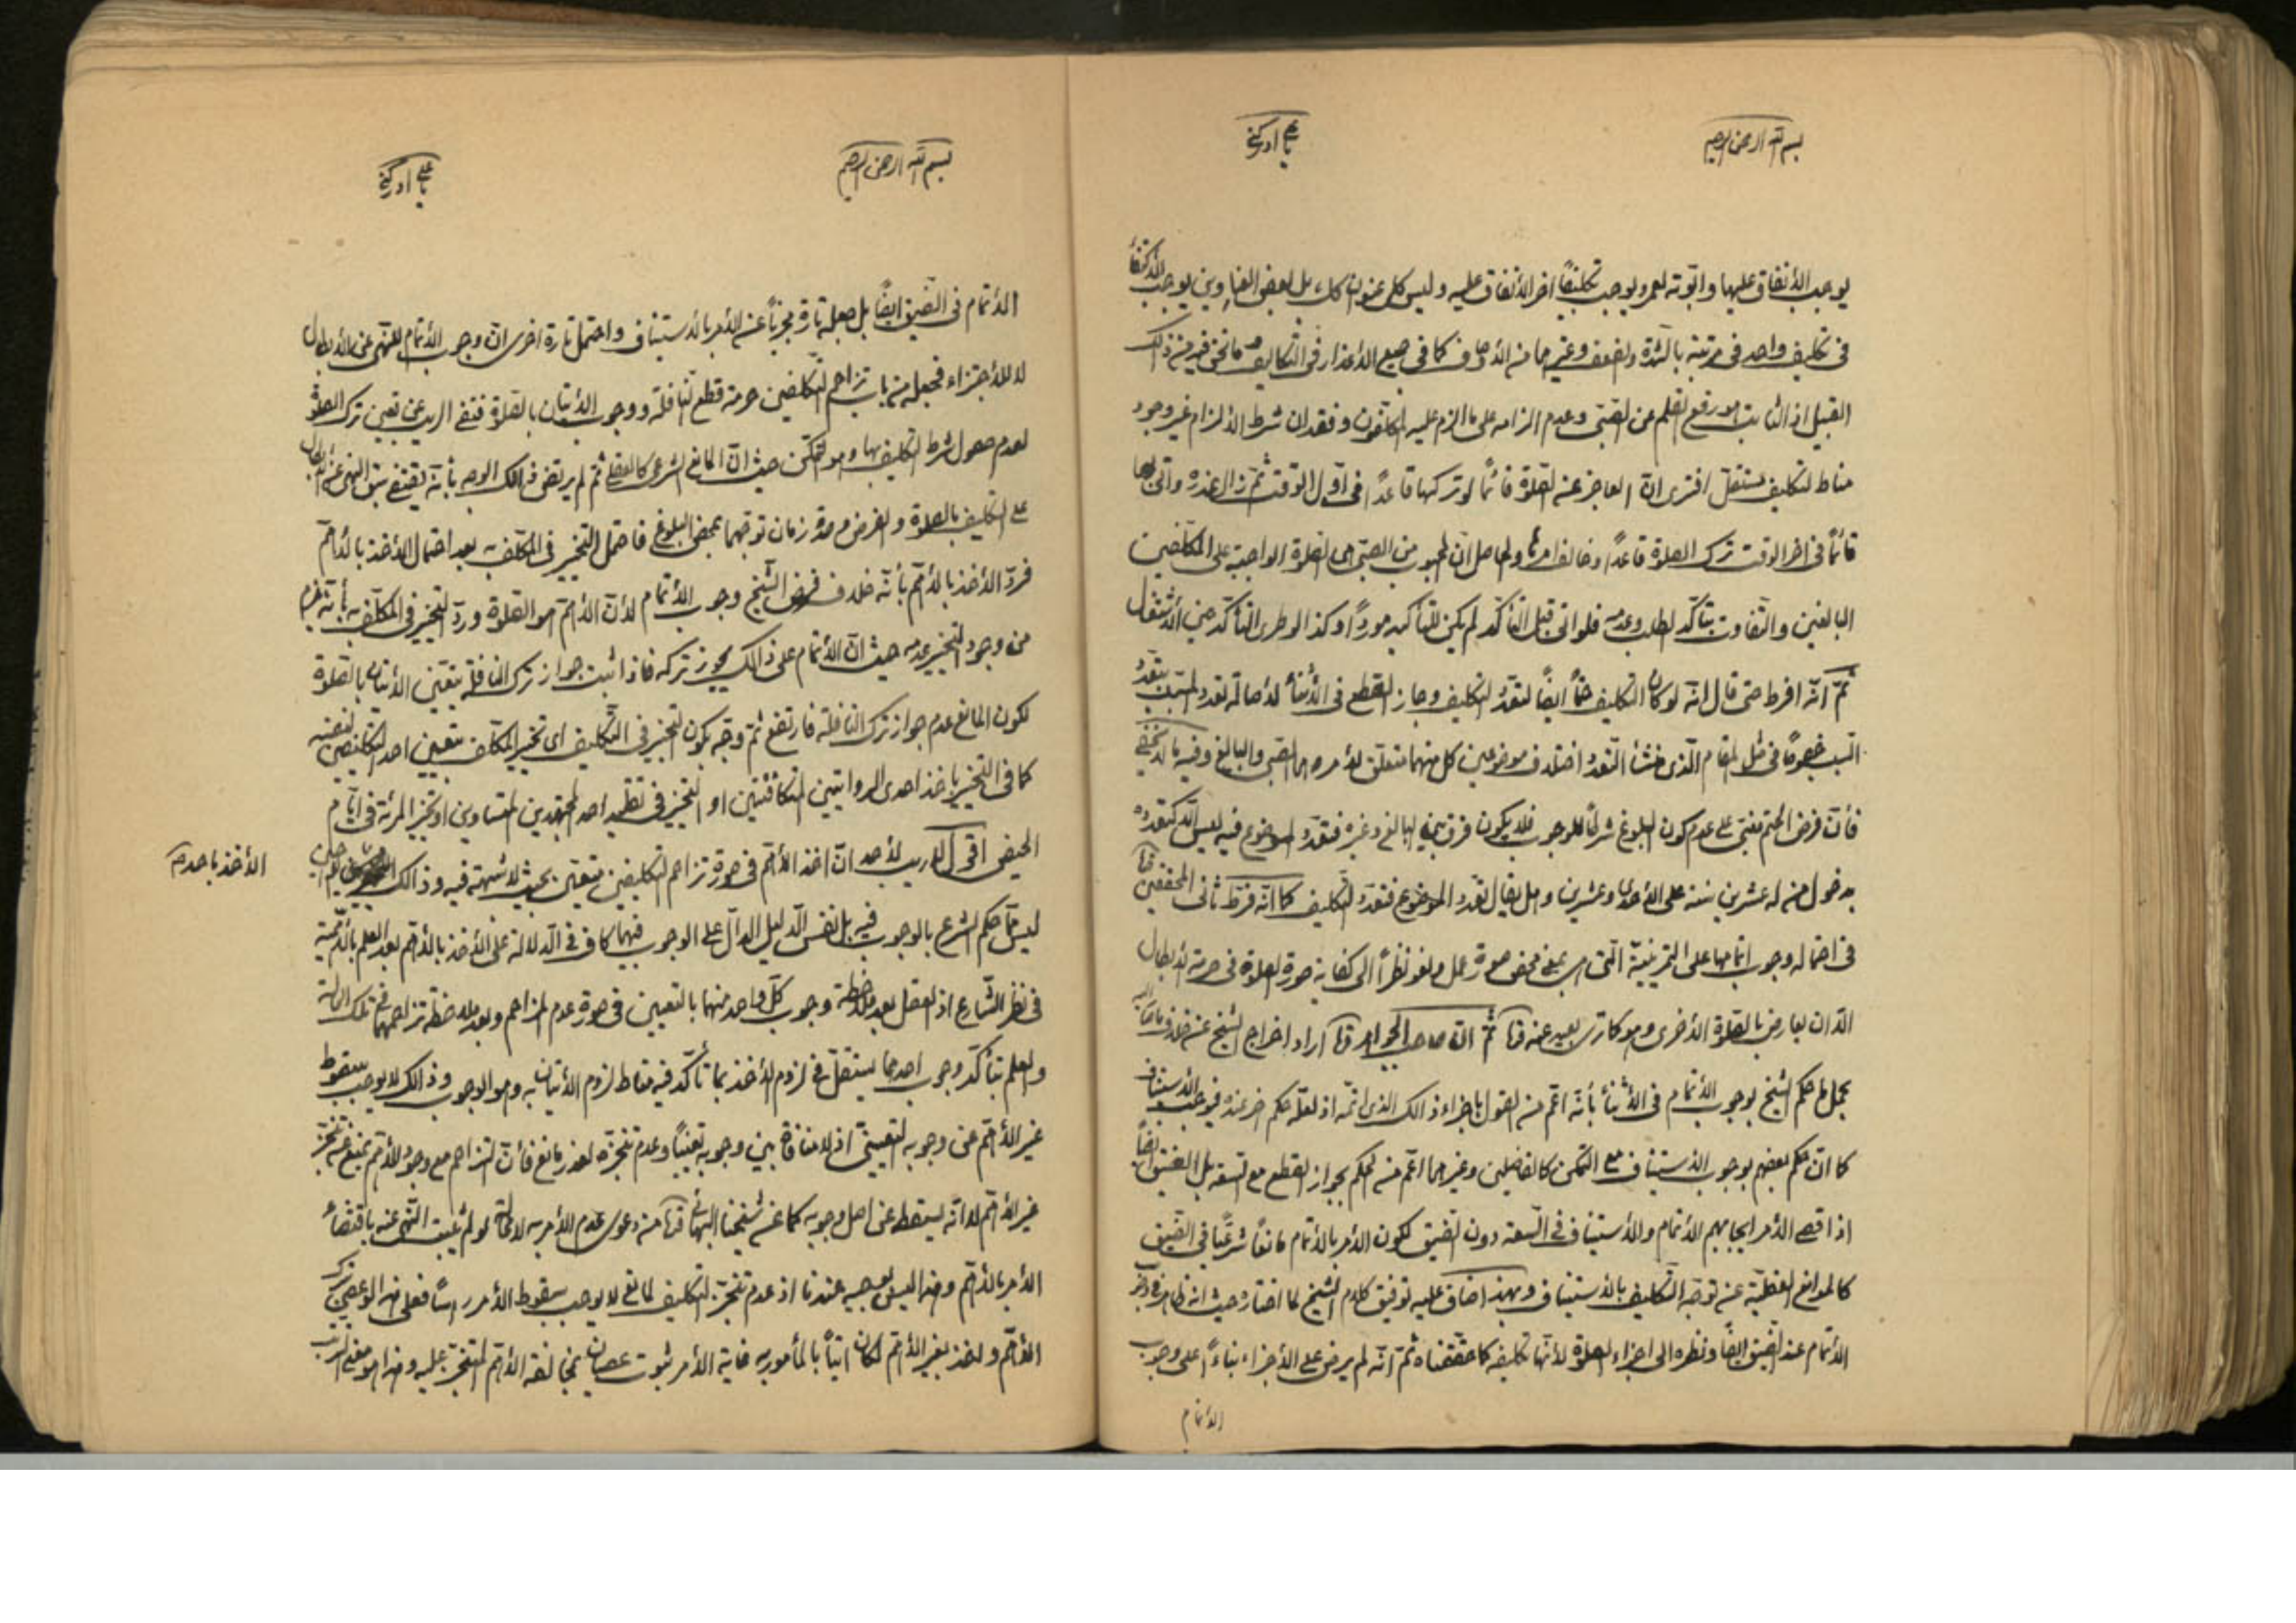 بسم الله الرحمن الرحيم
يا علي ادركني
يوجب الأنفاق عليها وابوته لعمرو يوجب تكليفاً اخر الأنفاق عليه وليس كل عنوان كك بل بعض العناوين يوجب
في تكليف واحد في مرتبته بالشدة والضعف وغيرهما من الأوصاف كما في جميع الأعذار في التكاليف وما نحن فيه من ذالك
القبيل اذ الثابت هو رفع القلم عن الصبي وعدم الزامه على ما الزم عليه المكلفون وفقدان شرط الألزام غير وجود
مناط لتكليف مستقل افترى ان العاجز عن الصلوة قائماً لو تركها قاعداً في اول الوقت ثم زال عذره واتى بها
قائماً في اخر الوقت ترك الصلوة قاعداً وخالف امرها والحاصل ان المحبوب من الصبي هي الصلوة الواجبة على المكلفين
البالغين والتفاوت بتأكد الطلب وعدمه فلو اتى قبل التأكد لم يكن للتأكيد مورداً وكذا لو طرء التأكد حين الأشتغال
ثم انه افرط حتى قال انه لو كان التكليف حتماً ايضاً لتعدد التكليف وجاز القطع في الأثناء لأصالة تعدد المسبب بتعدد
السبب خصوصاً في مثل المقام الذي منشأ التعدد اختلاف موضوعين كل منهما متعلق لأمر وهما الصبي والبالغ وفيه ما لا يخفى
فأن فرض الحتم مبني على عدم كون البلوغ شرطاً للوجوب فلا يكون فرق بين البالغ وغيره فتعدد الموضوع فيه ليس الا كتعدده
بدخول من له عشرين سنة على الأحد وعشرين وهل يقال تعدد الموضوع فتعدد التكليف كما انه فرط ثاني المحققين
في احتماله وجوب اتمامها على التمرينية التي هي محض صورة عمل ولغو نظراً الى كفاية صورة الصلوة في حرمة الأبطال
الا ان يعارض بالصلوة الأخرى وهو كما ترى بعيد عنه ثم ان صاحب الجواهر اراد اخراج الشيخ عن خلاف
بحمل ما حكم الشيخ بوجوب الأتمام في الأثناء بأنه اعم من القول باجزاء ذالك الذي اتمه اذ لعله حكم اخر عنده فيوجب الأستيناف
كما ان حكم بعضهم بوجوب الأستيناف مع التمكن كالفاضلين وغيرهما اعم من الحكم بجواز القطع مع السعة بل الضيق ايضاً
اذ اقصى الأمر ايجابهم الأتمام والأستيناف في السعة دون الضيق لكون الأمر بالأتمام مانعاً شرعياً في الضيق
كالموانع العقلية عن توجه التكليف بالأستيناف وبهذا اضاف عليه توفيق كلام الشيخ لما اختاره حيث انه ظاهر في وجوب
الأتمام عند الضيق ايضاً ونظره الى اجزاء الصلوة لأنها تكليفه كما حققناه ثم انه لم يرض على الأجزاء بناءً على وجوب
الأتمام
بسم الله الرحمن الرحيم
يا علي ادركني
الأتمام في الضيق ايضاً بل جعله تارة مجزياً عن الأمر بالأستيناف واحتمل تارة اخرى ان وجوب الأتمام للنهي عن الأبطال
لا للأجتزاء فجعله من باب تزاحم التكليفين حرمة قطع النافلة ووجوب الأتيان بالصلوة فنفى الريب عن تعين ترك الصلوة
لعدم حصول شرط التكليف بها وهو التمكن حيث ان المانع الشرعي كالعقلي ثم لم يرتض ذالك الوجه بأنه يقتضي سبق النهي عن الأبطال
على التكليف بالصلوة والفرض وحدة زمان توجههما بمحض البلوغ فاحتمل التخيير في المكلف به بعد احتمال الأخذ بالأهم
فرد الأخذ بالأهم بأنه خلاف فرض الشيخ وجوب الأتمام لأن الأهم هو الصلوة ورد التخيير في المكلف به بأنه يلزم
من وجود التخيير عدمه حيث ان الأتمام على ذالك يجوز تركه فاذا ثبت جواز ترك النافلة يتعين الأتيان بالصلوة
لكون المانع عدم جواز ترك النافلة فارتفع ثم وجه بكون التخيير في التكليف اي تخيير المكلف بتعيين احد التكليفين لنفسه
كما في التخيير باخذ احدى الروايتين المتكافئتين او التخيير في تقليد احد المجتهدين المتساوين او تخيير المرئة في ايام
الحيض اقول لا ريب لأحد ان اخذ الأهم في صورة تزاحم التكليفين متعين بحيث لا شبهة فيه وذالك
الأخذ باحدهم
ليس مما حكم الشرع بالوجوب فيه بل نفس الدليل الدال على الوجوب فيهما كاف في الدلالة على الأخذ بالأهم بعد العلم بالأهمية
في نظر الشارع اذ العقل بعد ملاحظة وجوب كل واحد منهما بالتعيين في صورة عدم المزاحم وبعد ملاحظة تزاحمهما في تلك الحالة
والعلم بتأكد وجوب احدهما يستقل في لزوم الأخذ بما تأكد فيه مناط لزوم الأتيان به وهو الوجوب وذالك لا يوجب سقوط
غير الأهم عن وجوبه التعييني اذ لا منافاة بين وجوبه تعييناً وعدم تنجزه لعذر مانع فأن التزاحم مع وجود الأهم يمنع عن تنجز
غير الأهم لا انه يسقطه عن اصل وجوبه كما عن شيخنا البهائي من دعوى عدم الأمر به لا محالة لو لم يثبت النهي عنه باقتضاء
الأمر بالأهم وهذا ليس بوجيه عندنا اذ عدم تنجز التكليف لمانع لا يوجب سقوط الأمر رأساً فعلى هذا لو عصى بترك
الأهم واخذ بغير الأهم لكان اتياً بالمأمور به غاية الأمر ثبوت عصيان بمخالفة الأهم المتنجز عليه وهذا هو معنى الترتب